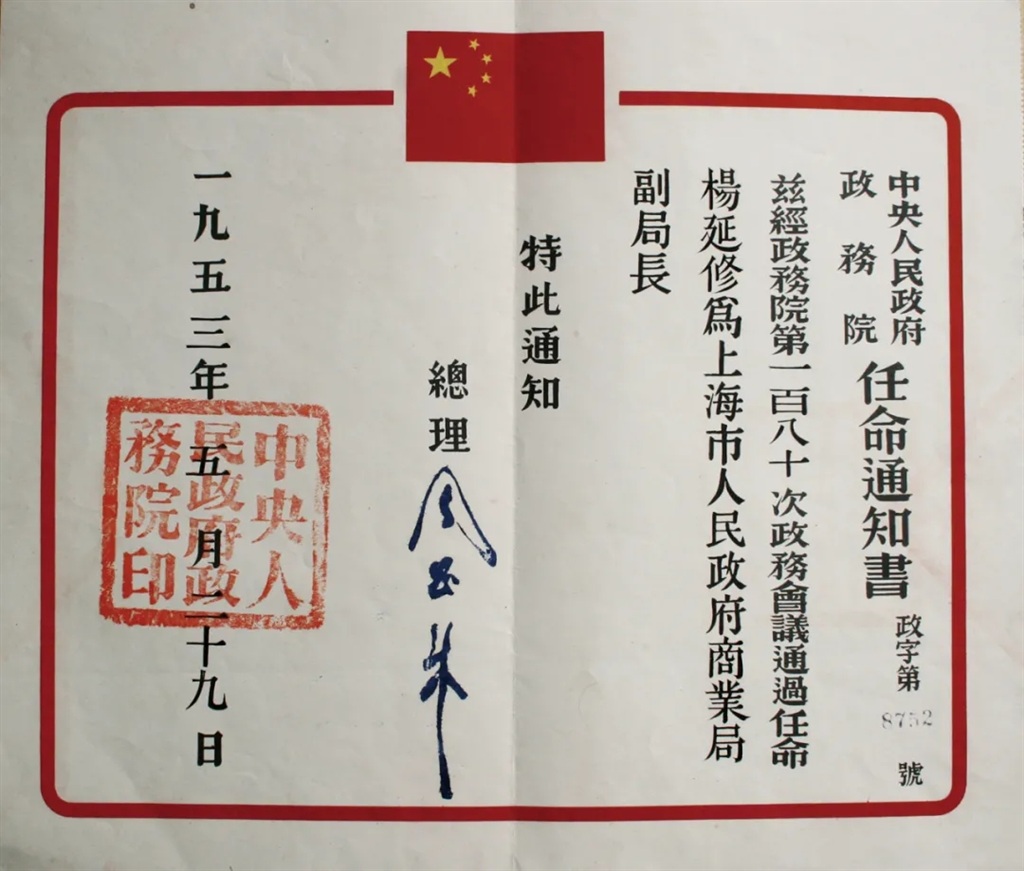 中央人民政府
政務院
任命通知書
政字第8752號
茲經政務院第一百八十次政務會議通過任命
楊延修爲上海市人民政府商業局
副局長
特此通知
總理 周恩來
一九五三年五月二十九日
中央人
民政府政
務院印